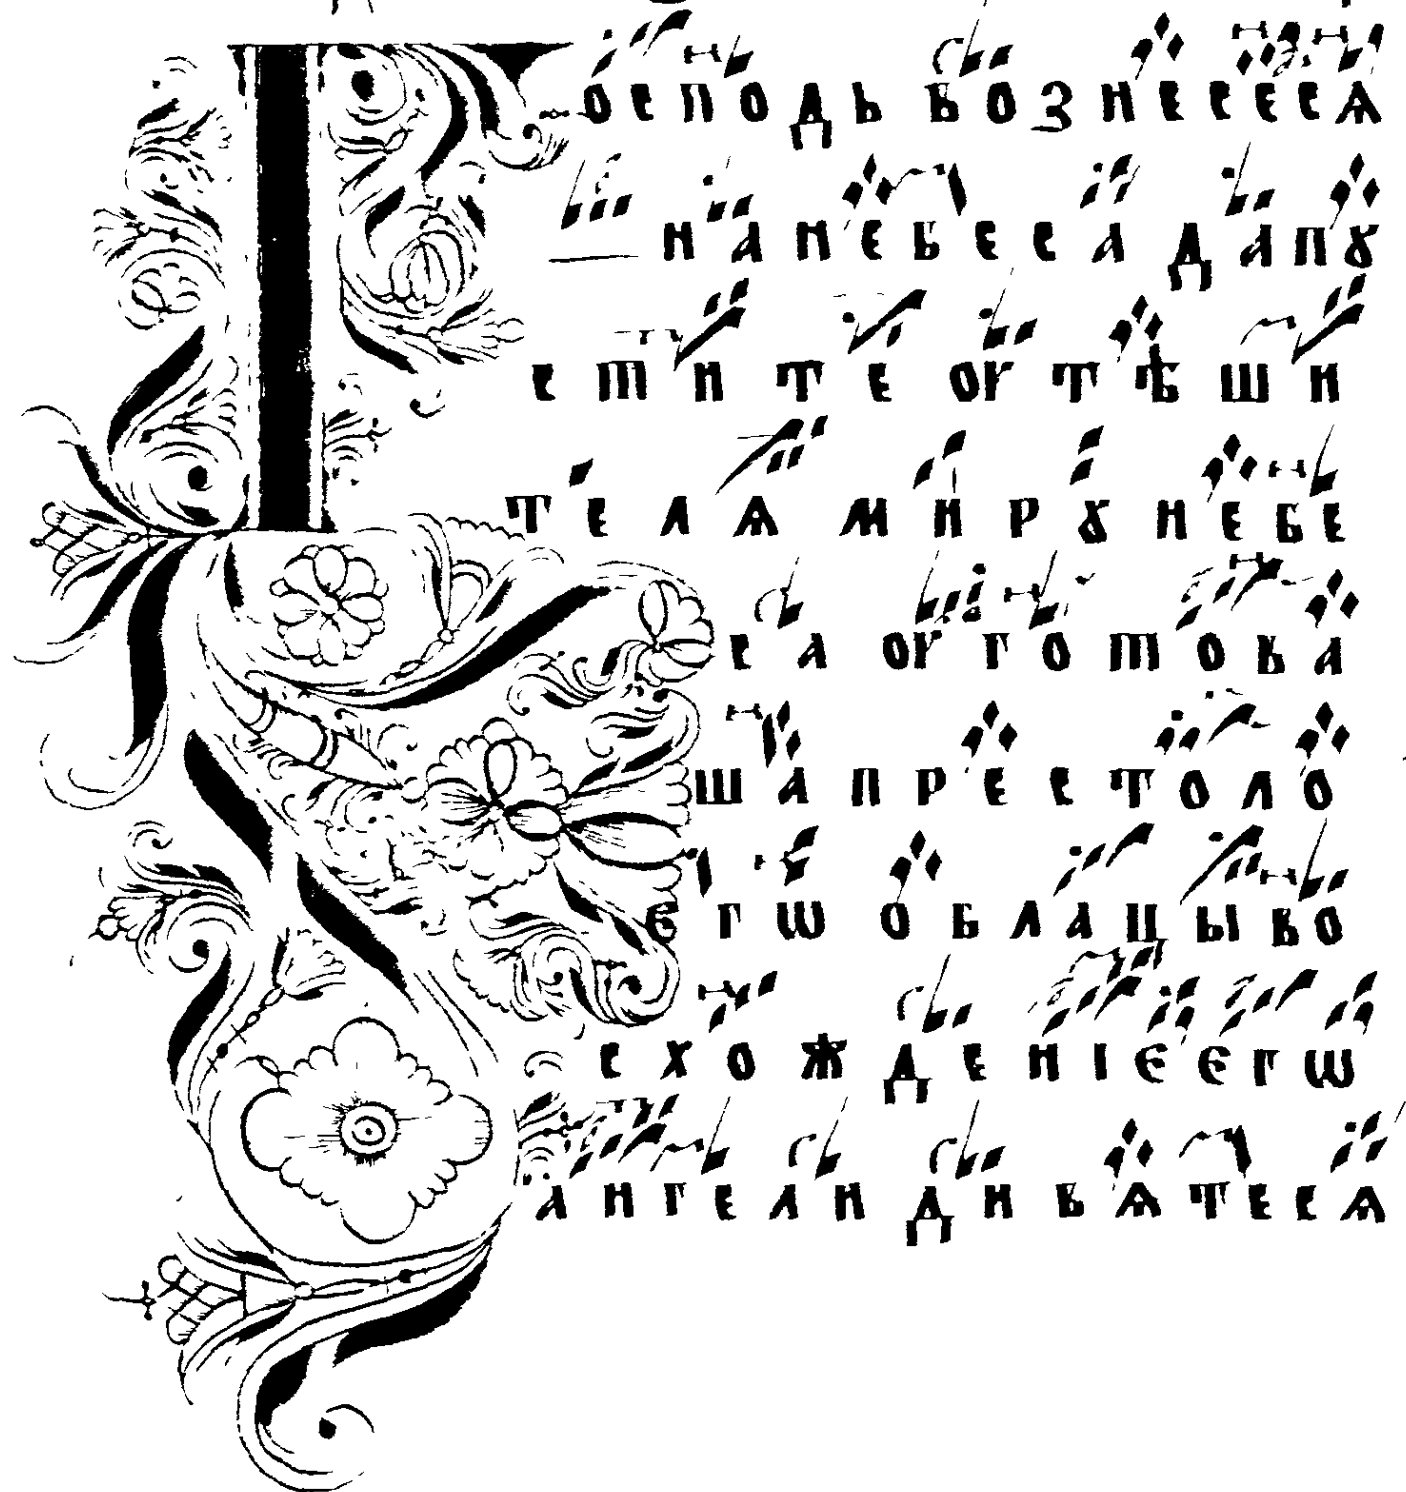 Господь вознесеся
на небеса да пꙋ
стите оутѣши
телѧ мирꙋ небе
са оуготоваша
ша престоло
єгѡ облацы во
схождениє єгѡ
ангели дивѧтсѧ